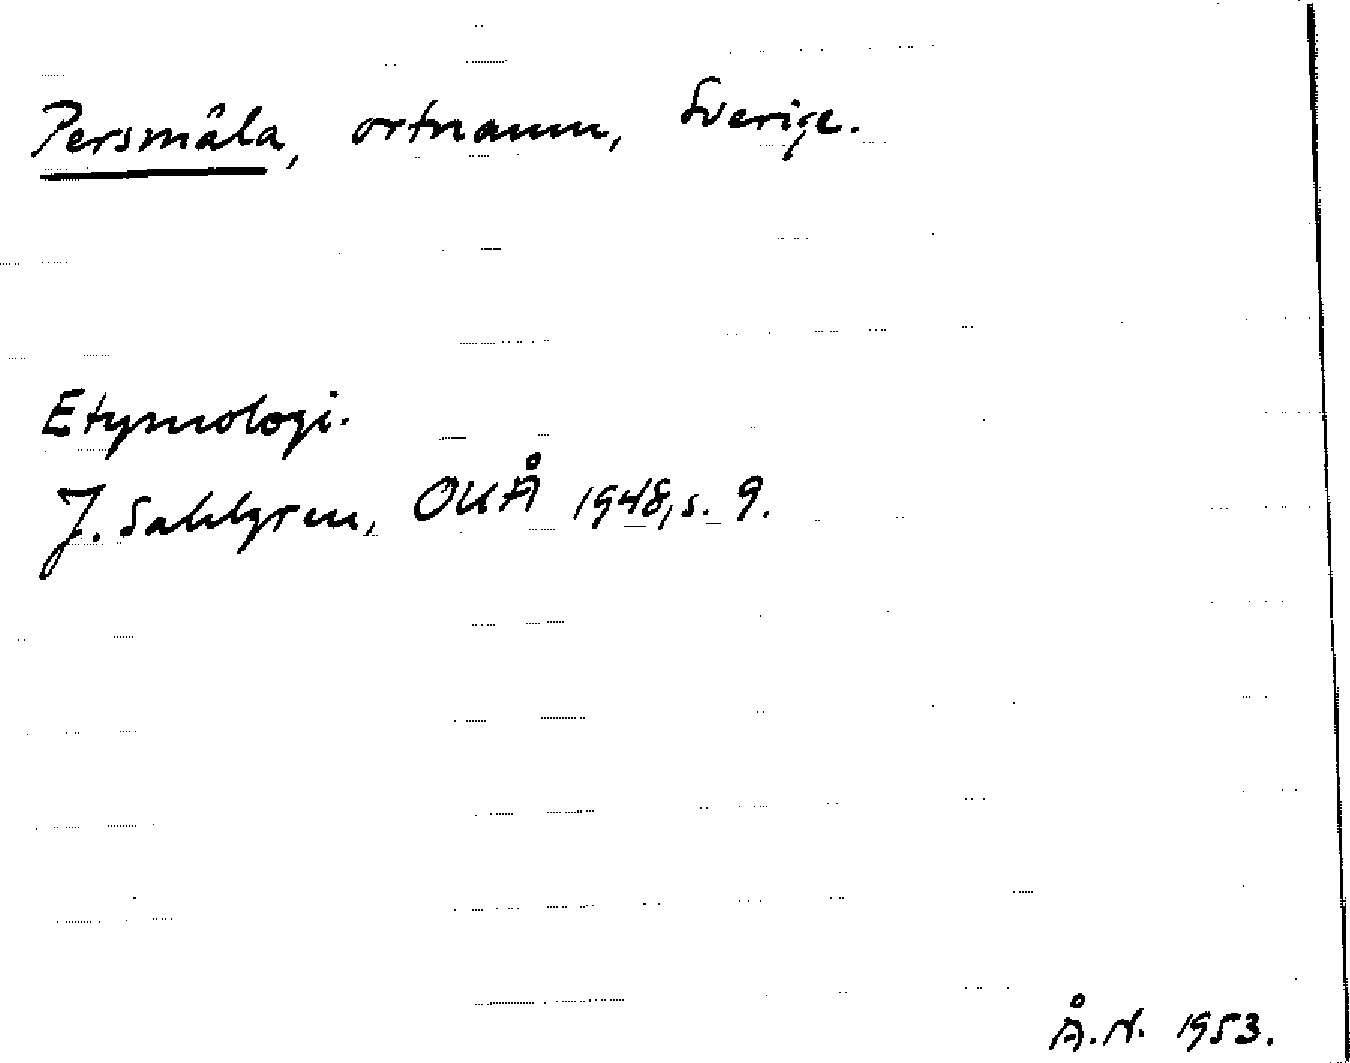 Persmåla, ortnamn, Sverige.
Etymologi.
J. Sahlgren, OUÅ 1948, s. 9.
Å.N. 1953.